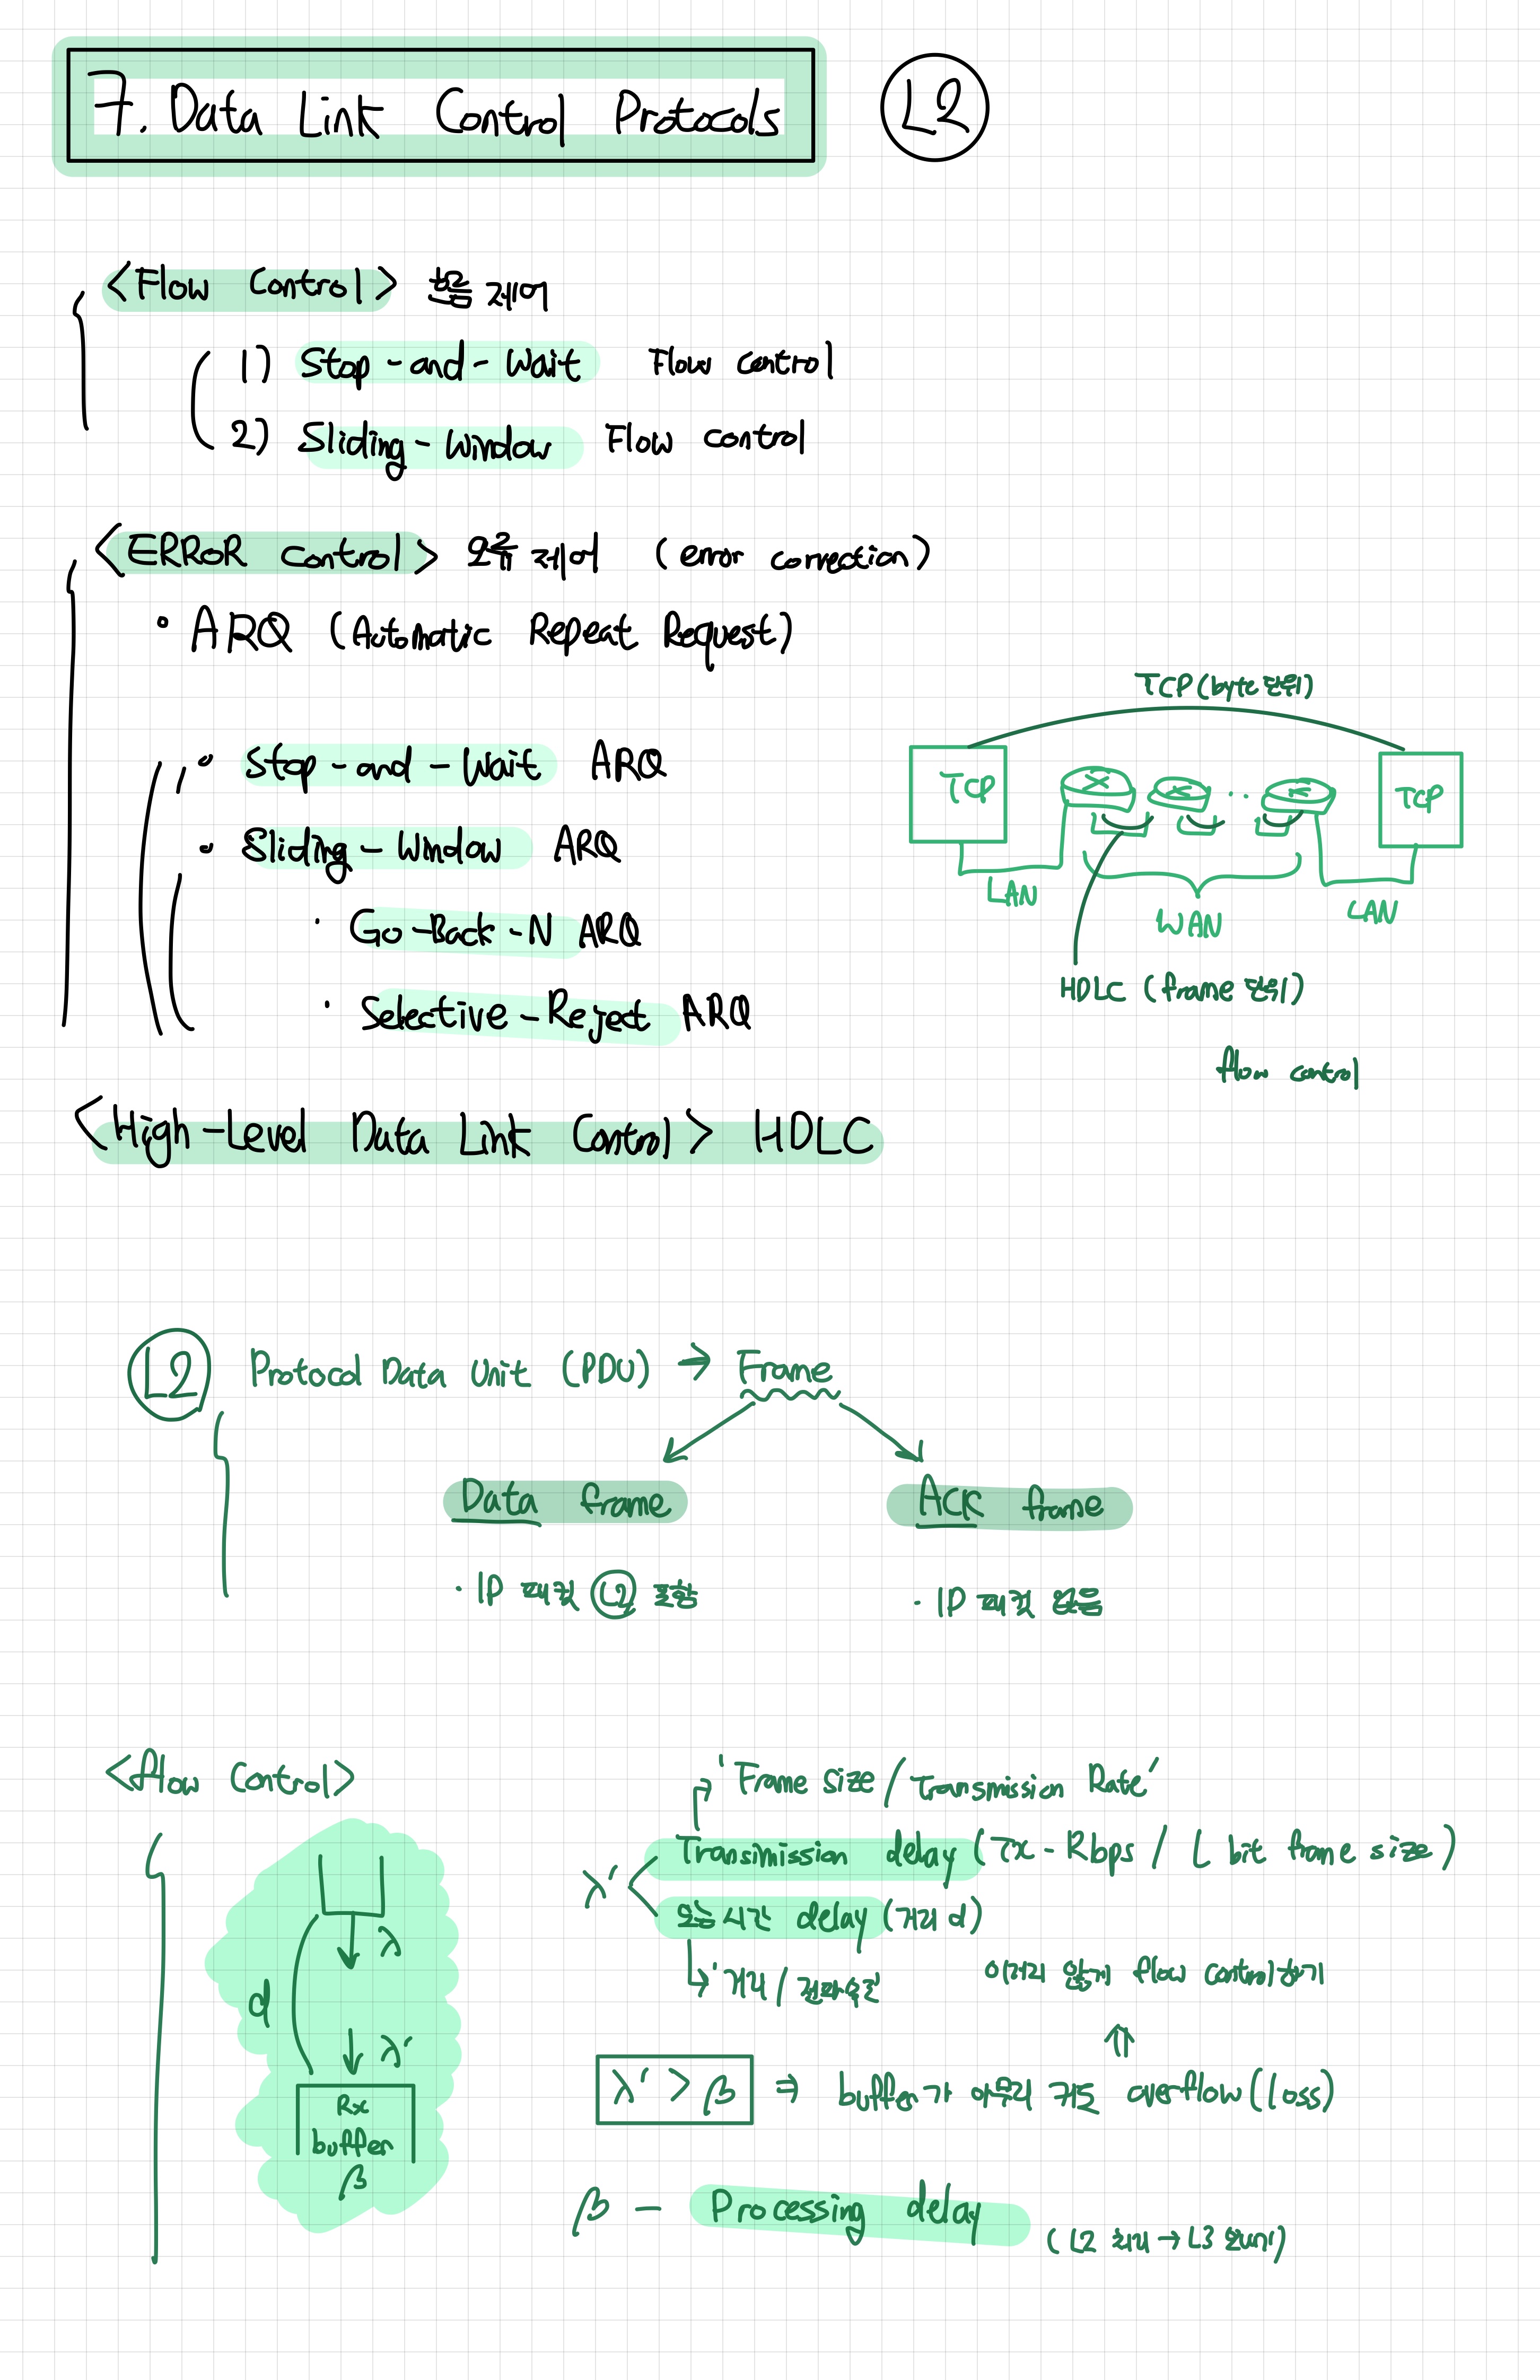 7. Data Link Control Protocols
L2
<Flow Control> 흐름 제어
1) Stop-and-Wait Flow control
2) Sliding-Window Flow control
<ERROR control> 오류 제어 (error correction)
• ARQ (Automatic Repeat Request)
• Stop-and-Wait ARQ
• Sliding-Window ARQ
· Go-Back-N ARQ
· Selective-Reject ARQ
TCP (byte 단위)
TCP
TCP
LAN
WAN
LAN
HDLC (frame 단위)
flow control
<High-Level Data Link Control> HDLC
L2 Protocol Data Unit (PDU) → Frame
Data frame
ACK frame
· IP 패킷 L2 포함
· IP 패킷 없음
<flow Control>
λ
d
λ'
Rx
buffer
β
'Frame size / Transmission Rate'
λ' Transimission delay (Tx-Rbps / L bit frame size)
오는시간 delay (거리 d)
'거리 / 전파속도'
이러지 않게 flow control하기
⇑
λ' > β ⇒ buffer가 아무리 커도 overflow (loss)
β - Processing delay
(L2 처리 → L3 보내기)